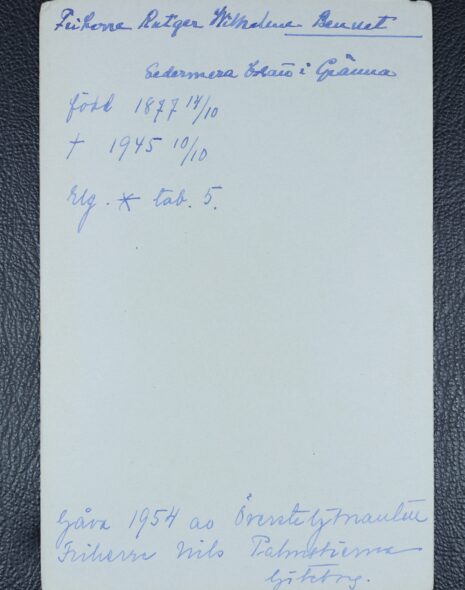 Friherre Rutger Wilhelm Bennet
Sedermera bofast i Gränna
född 1877 14/10
† 1945 10/10
Elg. * tab. 5.
Gåva 1954 av Överstelöjtnanten
Friherre Nils Palmstierna
Göteborg.